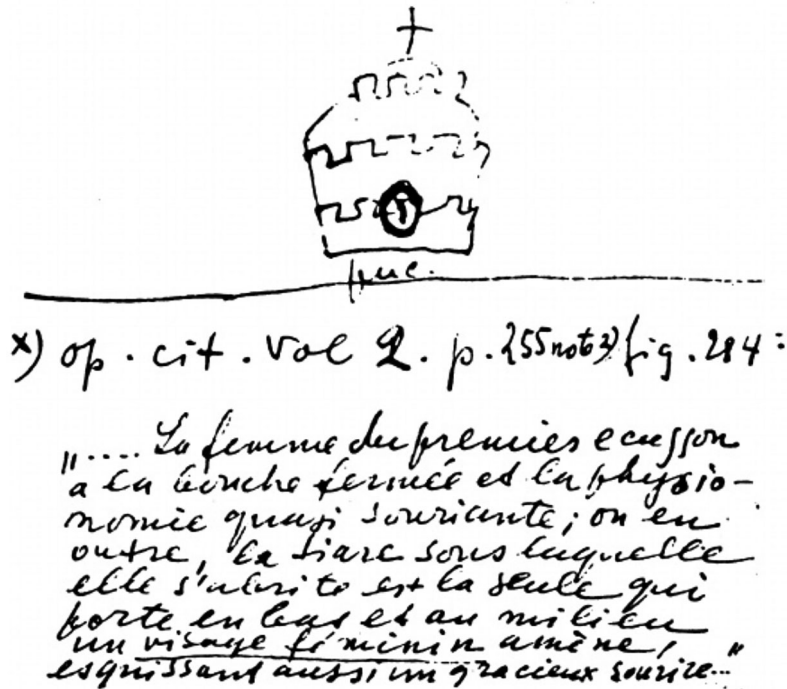 x) op. cit. Vol 2. p. 255 not 3) fig. 284:
„.... La femme du premier ecusson
a la bouche fermée et la physio-
nomie quasi souriante; on en
outre, la tiare sous laquelle
elle s'abrite est la seule qui
porte en bas et au milieu
un visage féminin amène,
esquissant aussi un gracieux sourire..."